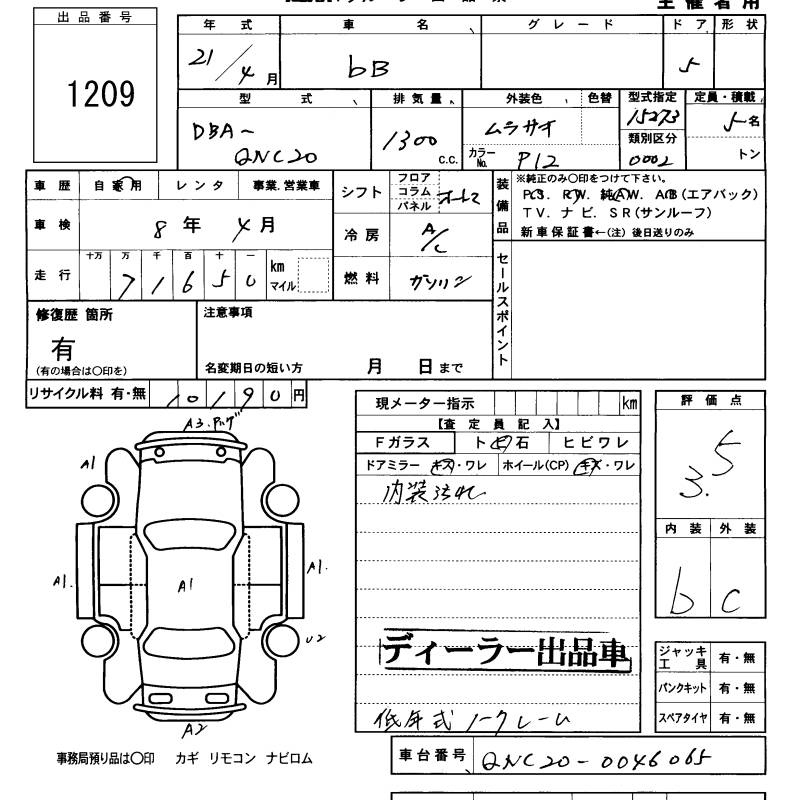 主催者用
出品番号
1209
年式 車名 グレード ドア 形状
21/4月 bB 5
型式 排気量 外装色 色替 型式指定 定員・積載
DBA- 1300 C.C. ムラサイ 15273 5名
QNC20 カラーNo. P12 類別区分 0002 トン
車歴 自家用 レンタ 事業.営業車 シフト フロア コラム パネル オートマ
装備品 ※純正のみ○印をつけて下さい。
PS. PW. 純AW. AB(エアバック)
TV. ナビ. SR(サンルーフ)
新車保証書←(注)後日送りのみ
車検 8年 4月 冷房 A/C
走行 十万 万 千 百 十 一 km マイル 燃料 ガソリン
7 1 6 5 0
セールスポイント
修復歴 箇所 注意事項
有
(有の場合は○印を) 名変期日の短い方 月 日まで
リサイクル料 有・無 10190円
現メーター指示 km
【査定員記入】
Fガラス ト ビ 石 ヒビワレ
ドアミラー キズ・ワレ ホイール(CP) キズ・ワレ
内装汚れ
ディーラー出品車
低年式 ノークレーム
評価点
3.5
内装 外装
b C
A1
A1. A1 A1.
U2
A2
ジャッキ工具 有・無
パンクキット 有・無
スペアタイヤ 有・無
事務局預り品は○印 カギ リモコン ナビロム
車台番号 QNC20-0046065